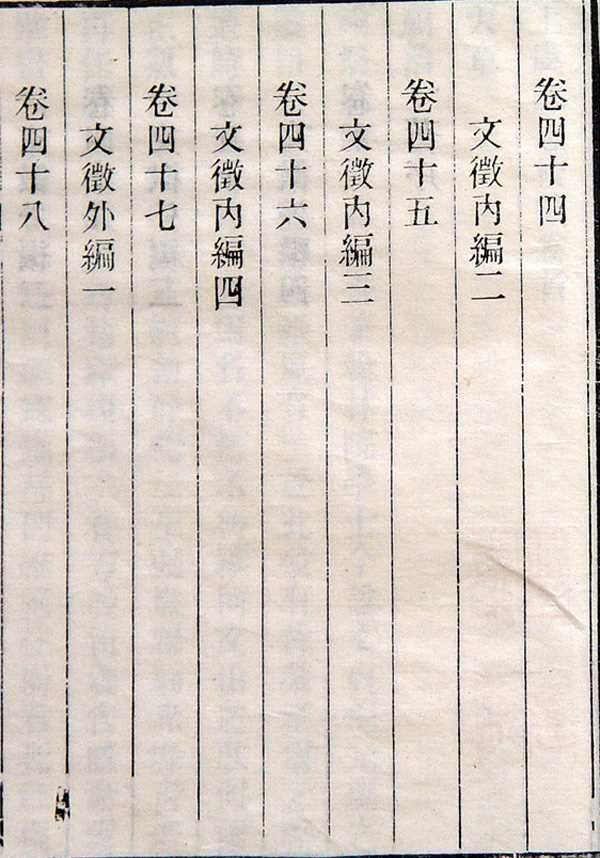 卷四十四
文徵內編二
卷四十五
文徵內編三
卷四十六
文徵內編四
卷四十七
文徵外編一
卷四十八